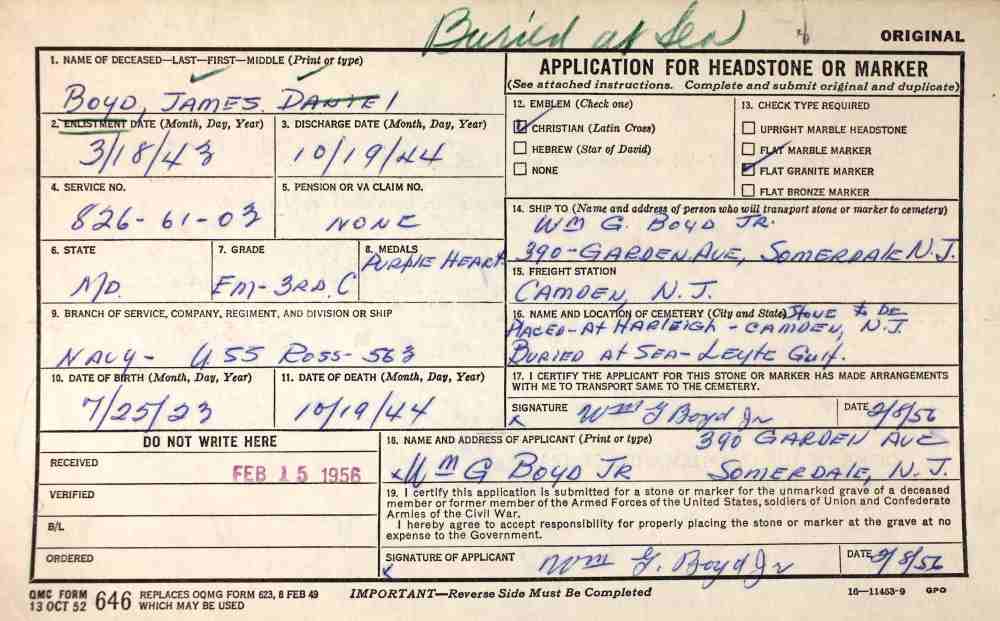 Buried at Sea
ORIGINAL
1. NAME OF DECEASED—LAST—FIRST—MIDDLE (Print or type)
BOYD, JAMES DANIEL
2. ENLISTMENT DATE (Month, Day, Year)
3/18/43
3. DISCHARGE DATE (Month, Day, Year)
10/19/44
4. SERVICE NO.
826-61-03
5. PENSION OR VA CLAIM NO.
NONE
6. STATE
MD.
7. GRADE
EM-3RD.C
8. MEDALS
PURPLE HEART
9. BRANCH OF SERVICE, COMPANY, REGIMENT, AND DIVISION OR SHIP
NAVY- USS ROSS-563
10. DATE OF BIRTH (Month, Day, Year)
7/25/23
11. DATE OF DEATH (Month, Day, Year)
10/19/44
APPLICATION FOR HEADSTONE OR MARKER
(See attached instructions. Complete and submit original and duplicate)
12. EMBLEM (Check one)
CHRISTIAN (Latin Cross)
HEBREW (Star of David)
NONE
13. CHECK TYPE REQUIRED
UPRIGHT MARBLE HEADSTONE
FLAT MARBLE MARKER
FLAT GRANITE MARKER
FLAT BRONZE MARKER
14. SHIP TO (Name and address of person who will transport stone or marker to cemetery)
WM G. BOYD JR.
390-GARDEN AVE, SOMERDALE N.J.
15. FREIGHT STATION
CAMDEN, N.J.
16. NAME AND LOCATION OF CEMETERY (City and State) STONE to BE
PLACED-At HARLEIGH-CAMDEN, N.J.
BURIED At SEA-LEYTE GULF.
17. I CERTIFY THE APPLICANT FOR THIS STONE OR MARKER HAS MADE ARRANGEMENTS
WITH ME TO TRANSPORT SAME TO THE CEMETERY.
SIGNATURE Wm G Boyd Jr
x
DATE 2/8/56
DO NOT WRITE HERE
RECEIVED
FEB 15 1956
VERIFIED
B/L
ORDERED
18. NAME AND ADDRESS OF APPLICANT (Print or type) 390 GARDEN AVE
x WM G BOYD JR SOMERDALE, N.J.
19. I certify this application is submitted for a stone or marker for the unmarked grave of a deceased
member or former member of the Armed Forces of the United States, soldiers of Union and Confederate
Armies of the Civil War.
I hereby agree to accept responsibility for properly placing the stone or marker at the grave at no
expense to the Government.
SIGNATURE OF APPLICANT Wm G. Boyd Jr
x
DATE 2/8/56
QMC FORM
13 OCT 52 646
REPLACES OQMG FORM 623, 8 FEB 49
WHICH MAY BE USED
IMPORTANT—Reverse Side Must Be Completed
16—11453-9 GPO